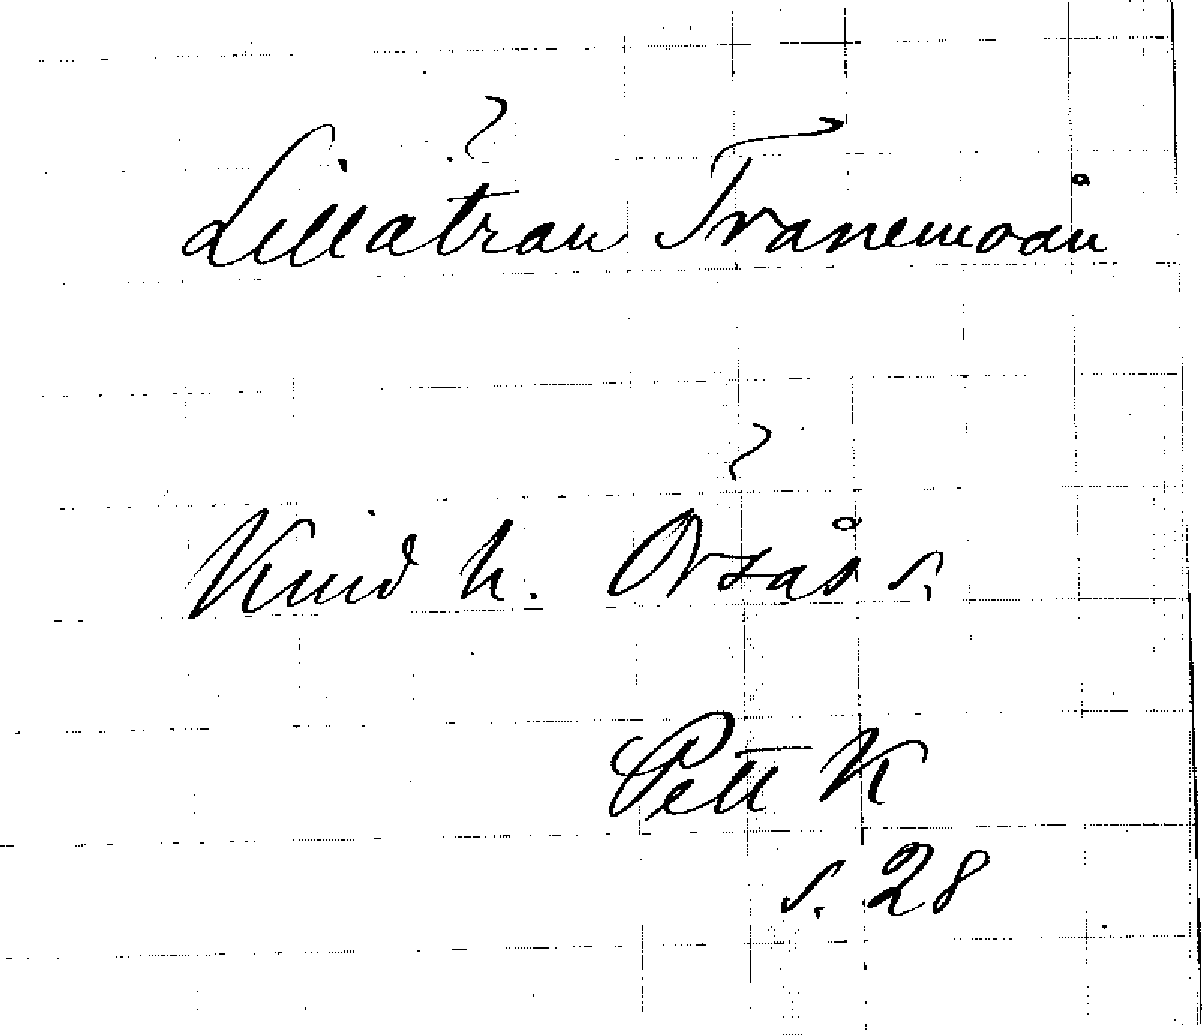 Lillätran Tranemoån
Kind h. Örsås s.
Pett K
s. 28